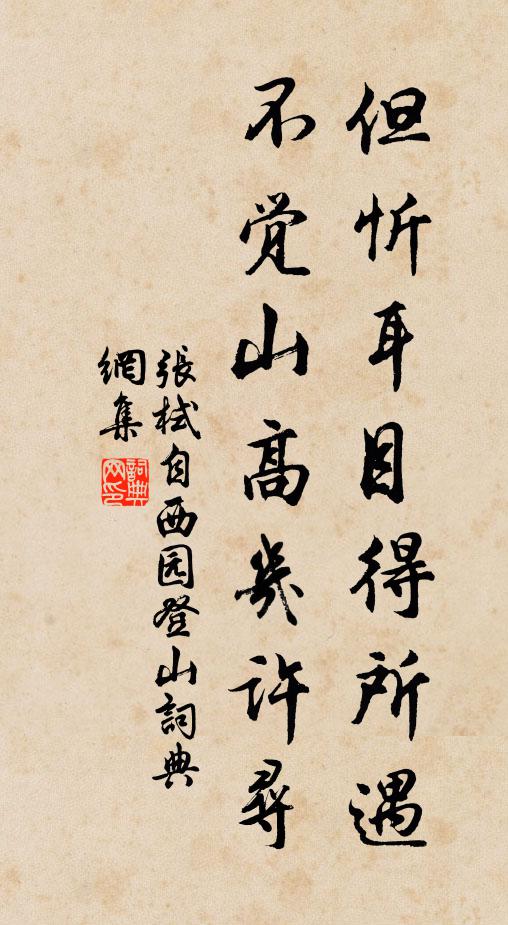 但忻耳目得所遇
不覚山高幾许尋
張栻自西园登山詞典
網集
詞典
网印